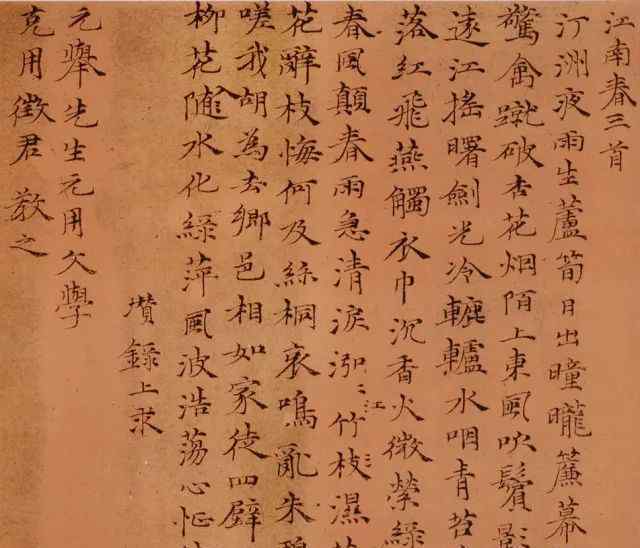 江南春三首
汀洲夜雨生蘆筍日出曈曨簾幕
驚禽蹴破杏花烟陌上東風吹鬢影
遠江搖曙劍光冷轆轤水咽青苔
落紅飛燕觸衣巾沉香火微縈綠
春風顛春雨急清淚泓〻江竹枝濕
花辭枝悔何及絲桐哀鳴亂朱碧
嗟我胡為去鄉邑相如家徒四壁
柳花隨水化綠萍風波浩蕩心怔
瓚錄上求
元舉先生元用文學
克用徵君 教之